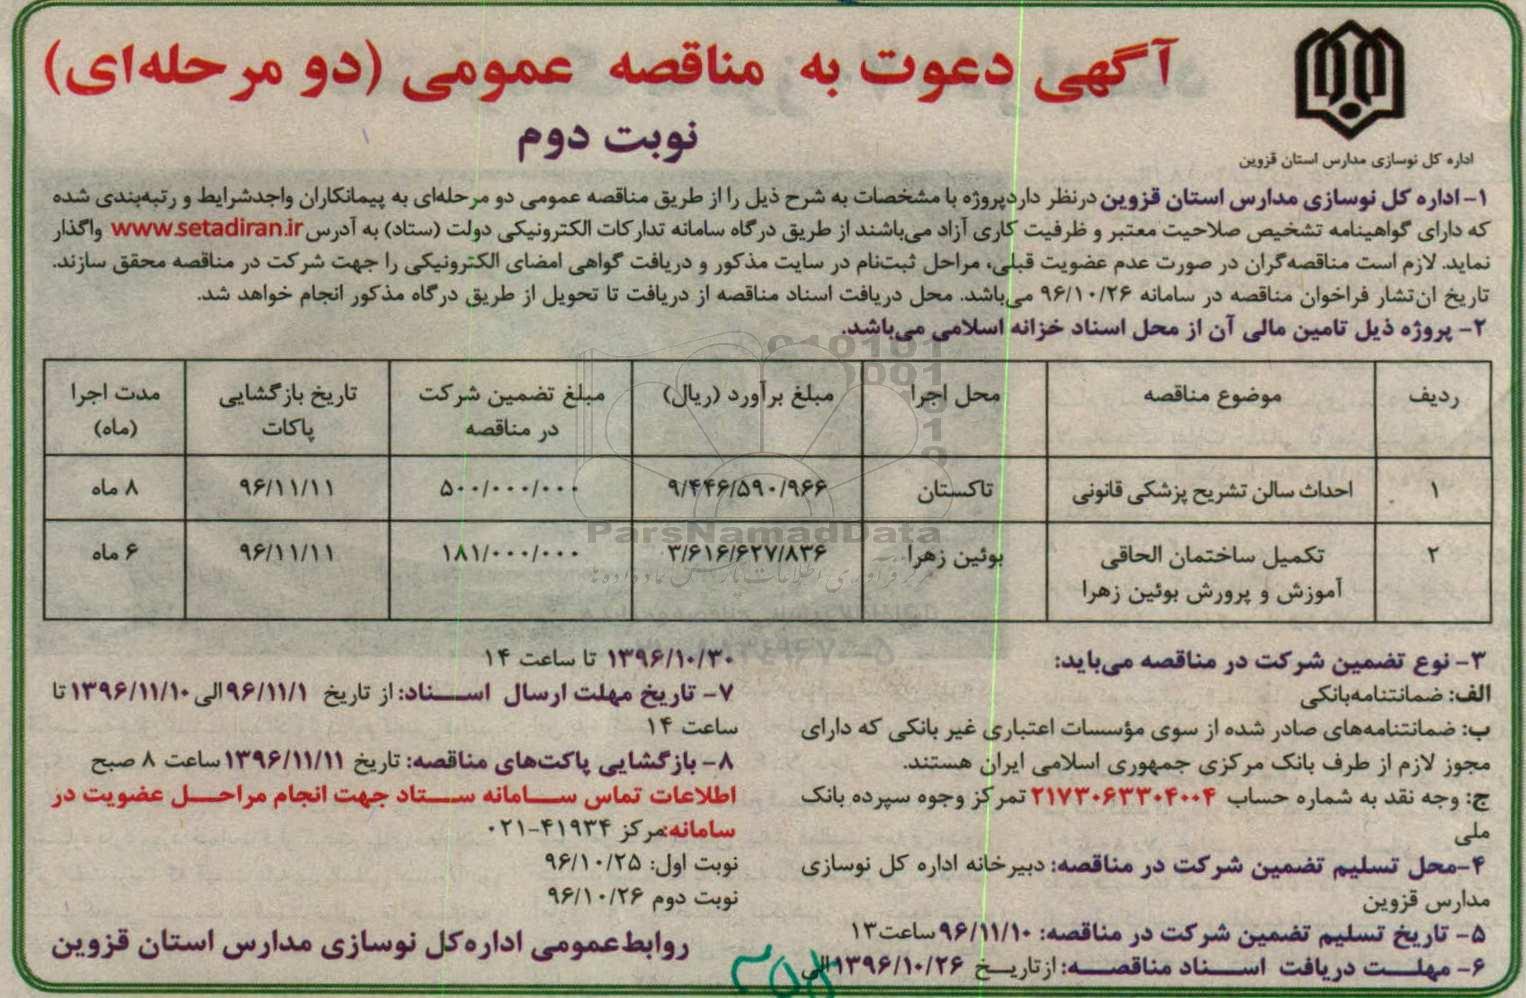 اداره کل نوسازی مدارس استان قزوین
آگهی دعوت به مناقصه عمومی (دو مرحله‌ای)
نوبت دوم
۱- اداره کل نوسازی مدارس استان قزوین درنظر دارد پروژه با مشخصات به شرح ذیل را از طریق مناقصه عمومی دو مرحله‌ای به پیمانکاران واجدشرایط و رتبه‌بندی شده
که دارای گواهینامه تشخیص صلاحیت معتبر و ظرفیت کاری آزاد می‌باشند از طریق درگاه سامانه تدارکات الکترونیکی دولت (ستاد) به آدرس www.setadiran.ir واگذار
نماید. لازم است مناقصه‌گران در صورت عدم عضویت قبلی، مراحل ثبت‌نام در سایت مذکور و دریافت گواهی امضای الکترونیکی را جهت شرکت در مناقصه محقق سازند.
تاریخ انتشار فراخوان مناقصه در سامانه ۹۶/۱۰/۲۶ می‌باشد. محل دریافت اسناد مناقصه از دریافت تا تحویل از طریق درگاه مذکور انجام خواهد شد.
۲- پروژه ذیل تامین مالی آن از محل اسناد خزانه اسلامی می‌باشد.
ردیف موضوع مناقصه محل اجرا مبلغ برآورد (ریال) مبلغ تضمین شرکت در مناقصه تاریخ بازگشایی پاکات مدت اجرا (ماه)
۱ احداث سالن تشریح پزشکی قانونی تاکستان ۹/۴۴۶/۵۹۰/۹۶۶ ۵۰۰/۰۰۰/۰۰۰ ۹۶/۱۱/۱۱ ۸ ماه
۲ تکمیل ساختمان الحاقی آموزش و پرورش بوئین زهرا بوئین زهرا ۳/۶۱۶/۶۲۷/۸۳۶ ۱۸۱/۰۰۰/۰۰۰ ۹۶/۱۱/۱۱ ۶ ماه
ParsNamadData
۳- نوع تضمین شرکت در مناقصه می‌باید:
الف: ضمانتنامه‌بانکی
ب: ضمانتنامه‌های صادر شده از سوی مؤسسات اعتباری غیر بانکی که دارای
مجوز لازم از طرف بانک مرکزی جمهوری اسلامی ایران هستند.
ج: وجه نقد به شماره حساب ۲۱۷۳۰۶۳۳۰۴۰۰۴ تمرکز وجوه سپرده بانک
ملی
۴-محل تسلیم تضمین شرکت در مناقصه: دبیرخانه اداره کل نوسازی
مدارس قزوین
۵- تاریخ تسلیم تضمین شرکت در مناقصه: ۹۶/۱۱/۱۰ ساعت۱۳
۶- مهلت دریافت اسناد مناقصه: ازتاریخ ۱۳۹۶/۱۰/۲۶ الی
۱۳۹۶/۱۰/۳۰ تا ساعت ۱۴
۷- تاریخ مهلت ارسال اسناد: از تاریخ ۹۶/۱۱/۱ الی ۱۳۹۶/۱۱/۱۰ تا
ساعت ۱۴
۸- بازگشایی پاکت‌های مناقصه: تاریخ ۱۳۹۶/۱۱/۱۱ ساعت ۸ صبح
اطلاعات تماس سامانه ستاد جهت انجام مراحل عضویت در
سامانه: مرکز ۴۱۹۳۴-۰۲۱
نوبت اول: ۹۶/۱۰/۲۵
نوبت دوم ۹۶/۱۰/۲۶
روابط‌عمومی اداره‌کل نوسازی مدارس استان قزوین